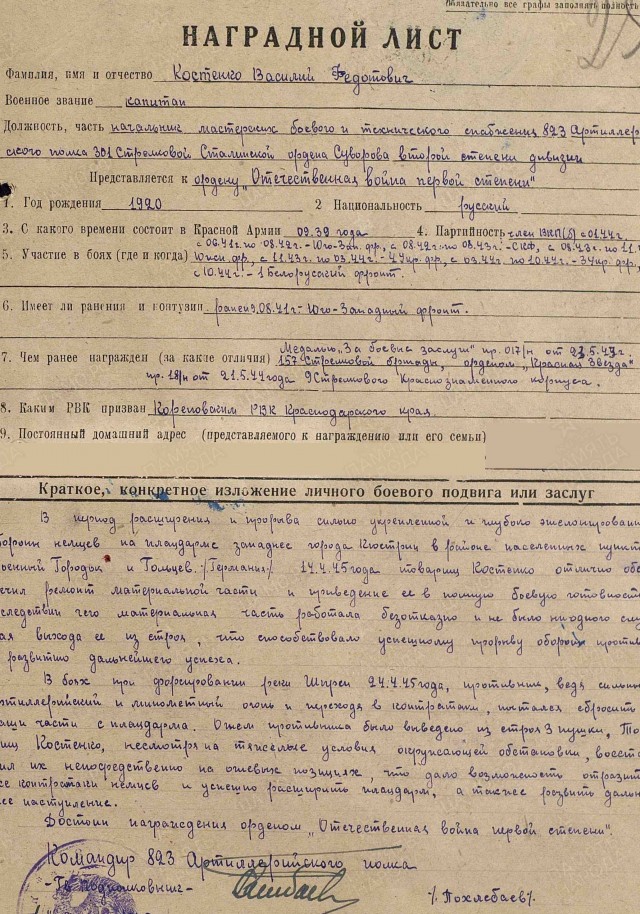 Обязательно все графы заполнять полность
НАГРАДНОЙ ЛИСТ
Фамилия, имя и отчество Костенко Василий Федотович
Военное звание капитан
Должность, часть начальник мастерских боевого и технического снабжения 823 Артиллер
ского полка 301 Стрелковой Сталинской ордена Суворова второй степени дивизии
Представляется к ордену "Отечественная война первой степени"
1. Год рождения 1920 2 Национальность русский
3. С какого времени состоит в Красной Армии 09.39 года 4. Партийность член ВКП(б) с 01.44г.
с 06.41г. по 08.42г - Юго-Зап. фр., с 08.42г. по 08.43г. - СКФ, с 08.43г. по 11.
5. Участие в боях (где и когда) Южн. фр., с 11.43г. по 03.44г. - 4 Укр. фр., с 03.44г. по 10.44г. - 3 Укр. фр.,
с 10.44г. - 1 Белорусский фронт.
6. Имеет ли ранения и контузии ранен 9.08.41г - Юго-Западный фронт.
Медалью „За боевые заслуги" пр. 017/н от 23.5.43г.
7. Чем ранее награжден (за какие отличия) 157 Стрелковой бригады, орденом „Красная Звезда"
пр. 18/н от 21.5.44 года 9 Стрелкового Краснознаменного корпуса.
8. Каким РВК призван Кореновским РВК Краснодарского края.
9. Постоянный домашний адрес (представляемого к награждению или его семьи)
Краткое, конкретное изложение личного боевого подвига или заслуг
В период расширения и прорыва сильно укрепленной и глубоко эшелонирован
обороны немцев на плацдарме западнее города Кюстрин в районе населенных пункт
оенный Городок и Гольцев. /Германия/ 14.4.45 года товарищ Костенко отлично обе
ечил ремонт материальной части и приведение ее в полную боевую готовност
следствии чего материальная часть работала безотказно и не было ни одного слу
ая выхода ее из строя, что способствовало успешному прорыву обороны против
развитию дальнейшего успеха.
В боях при форсировании реки Шпрее 24.4.45 года, противник, ведя сильны
ртиллерийский и минометный огонь и переходя в контратаки, пытался сбросить
аши части с плацдарма. Огнем противника было выведено из строя 3 пушки, То
ищ Костенко, несмотря на тяжелые условия окружающей обстановки, восста
ил их непосредственно на огневых позициях, что дало возможность отразит
се контратаки немцев и успешно расширить плацдарм, а также развить дальн
ее наступление.
Достоин награждения орденом „Отечественная война первой степени".
Командир 823 Артиллерийского полка
- Гв подполковник - /Похлебаев/